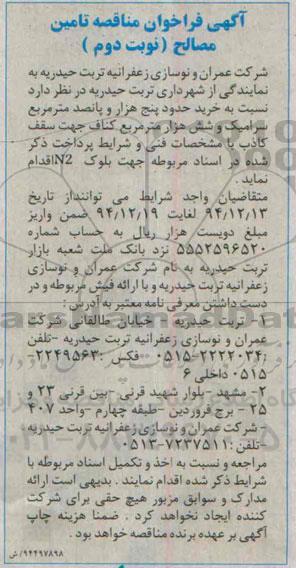 آگهی فراخوان مناقصه تامین
مصالح ( نوبت دوم )
شرکت عمران و نوسازی زعفرانیه تربت حیدریه به
نمایندگی از شهرداری تربت حیدریه در نظر دارد
نسبت به خرید حدود پنج هزار و پانصد مترمربع
سرامیک و شش هزار مترمربع کناف جهت سقف
کاذب با مشخصات فنی و شرایط پرداخت ذکر
شده در اسناد مربوطه جهت بلوک N2اقدام
نماید .
متقاضیان واجد شرایط می تواننداز تاریخ
۹۴/۱۲/۱۳ لغایت ۹۴/۱۲/۱۹ ضمن واریز
مبلغ دویست هزار ریال به حساب شماره
۵۵۵۲۵۹۶۵۲۰ نزد بانک ملت شعبه بازار
تربت حیدریه به نام شرکت عمران و نوسازی
زعفرانیه تربت حیدریه و با ارائه فیش مربوطه و در
دست داشتن معرفی نامه معتبر به آدرس :
۱- تربت حیدریه - خیابان طالقانی شرکت
عمران و نوسازی زعفرانیه تربت حیدریه -تلفن
:۲۲۲۲۰۳۴-۰۵۱۵ فکس :۲۲۴۹۵۶۳-
۰۵۱۵ داخلی ۶
۲- مشهد- بلوار شهید قرنی -بین قرنی ۲۳ و
۲۵ - برج فروردین -طبقه چهارم -واحد ۴۰۷
- شرکت عمران و نوسازی زعفرانیه تربت حیدریه
-تلفن :۷۲۳۷۵۱۱-۰۵۱۳
مراجعه و نسبت به اخذ و تکمیل اسناد مربوطه با
شرایط ذکر شده اقدام نمایند . بدیهی است ارائه
مدارک و سوابق مزبور هیچ حقی برای شرکت
کننده ایجاد نخواهد کرد . ضمنا هزینه چاپ
آگهی بر عهده برنده مناقصه خواهد بود .
۹۴۴۹۷۸۹۸/ش